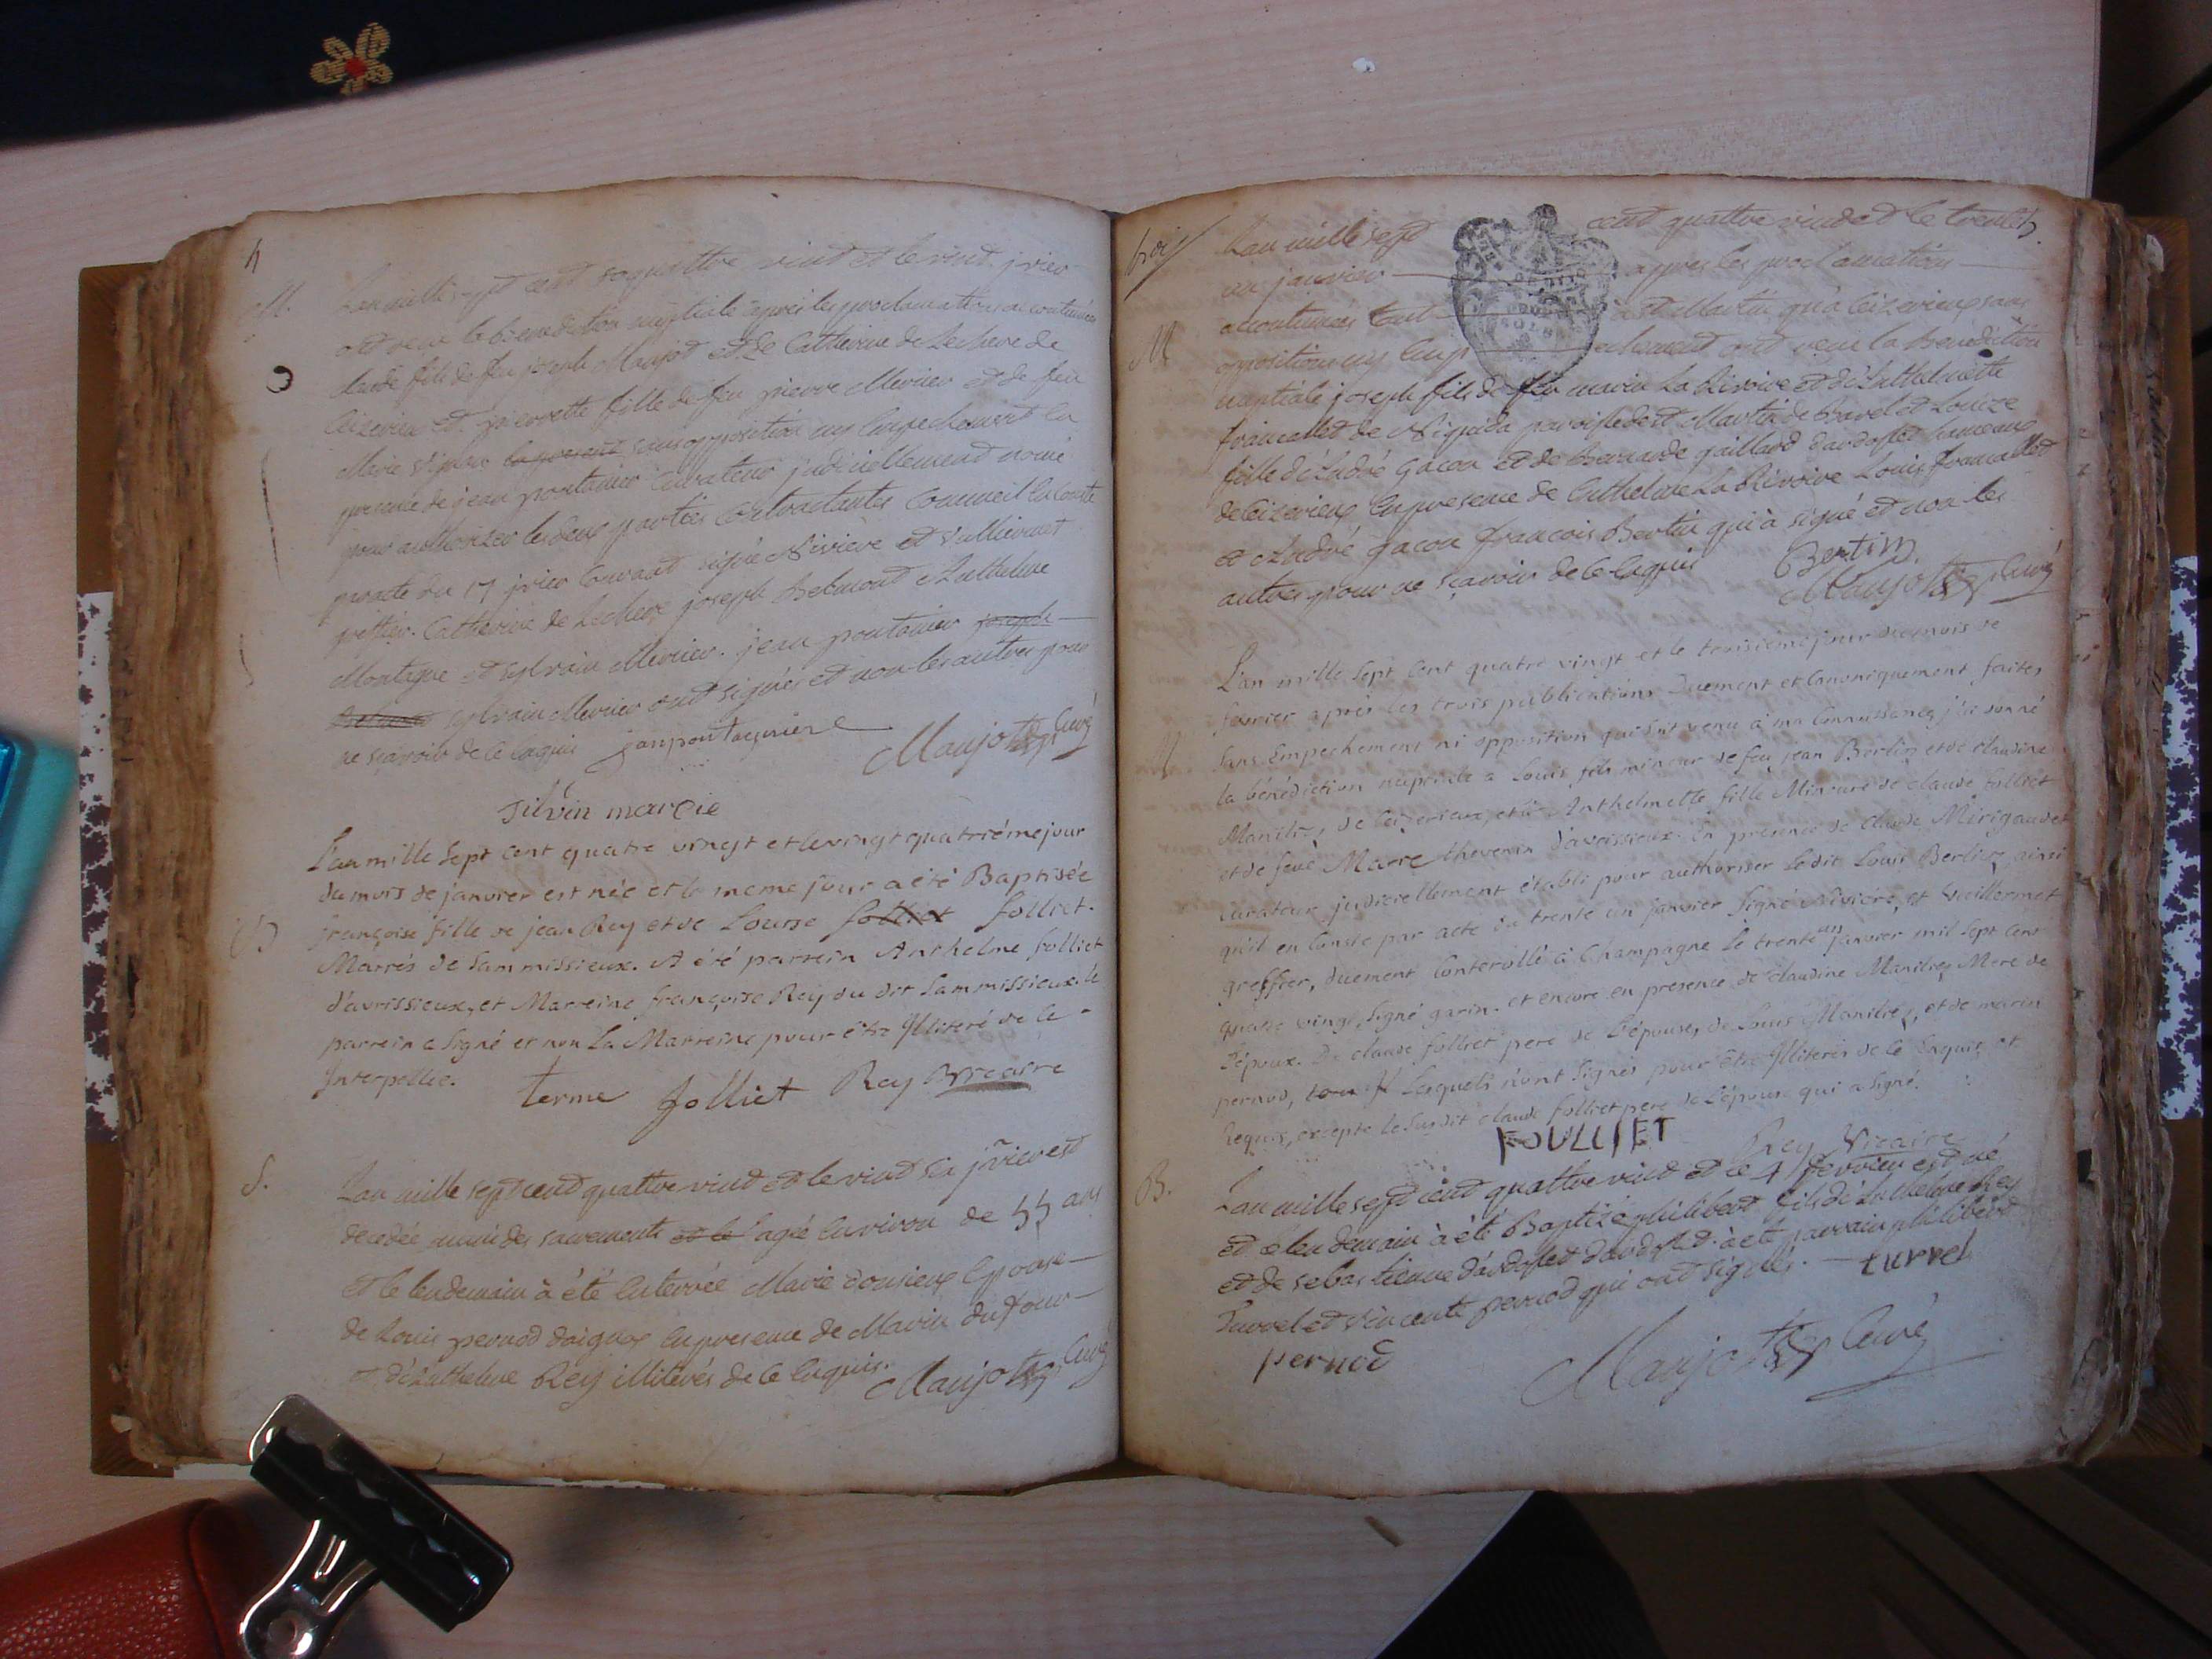 4
M.
L'an mille sept cent quattre vint et le vint jvier
ont recu la benediction nuptiale apres les proclamations accoutumées
Claude fils de feu joseph Maujot et de Catherine de Lechere de
Ceizerieu et pierrette fille de feu pierre Mercier et de feu
Marie sans opposition ny Empechement En
presence de jean pontanier Curateur judiciellement nomé
pour authorizer les deux parties Contractantes Comme il En Conste
par acte du 17 jvier Courant signé Nivière et Vulliermet
greffier. Catherine de Lechere joseph Belmond Anthelme
Montagne et sylvain Mercier. jean pontanier joseph
Belmond sylvain Mercier ont signés et non les autres pour
ne sçavoir de ce Enquis janpontagniere Maujot Curé
silvin marcie
L'an mille Sept Cent quatre vingt et le vingt quatriéme jour
B
du mois de janvier est née et le meme jour a été Baptisée
françoise fille de jean Rey et de Louise folliet folliet.
Mariés de Sammissieux. A été parrein Anthelme folliet
d'avrissieux, et Marreine françoise Rey du dit Sammissieux. le
parrein a Signé et non La Marreine pour être Jlliteré de ce
Jnterpellée.
terme folliet Rey Vicaire
S.
L'an mille sept cent quattre vint et le vint six jvier est
decedée munie des sacrements et le agée Environ de 55 ans
et le lendemain à été Enterrée Marie Epouse
de Louis pernod d'aignoz En presence de Marin dufour
et d'Anthelme Rey illiterés de ce Enquis. Maujot Curé
trois
L'an mille sept cent quattre vint et le trente
un janvier appres les proclamations
M
accoutumées tant à st Martin qu'à Ceizerieu sans
opposition ny Emp echement ont recu la Benediction
nuptiale joseph fils de feu marin La Rivoire et d'Anthelmette
francallet de paroisse de st Martin de Bavel et Louize
fille d'André Gacon et de Bernarde gaillard d'ardosset hameau
de Ceizerieu En presence de Anthelme La Rivoire Louis francallet
et André gacon françois Bertin qui à signé et non les
autres pour ne sçavoir de ce Enquis Bertin
Maujot Curé
L'an mille Sept Cent quatre vingt et le troisieme jour du mois de
fevrier après les trois publications Duement et Canoniquement faites
M
Sans Empechement ni opposition qui soit venu à ma Connoissance, j'ai donné
la bénédiction nuptiale a Louis fils mineur de feu jean Berlier et de claudine
Manilier, de Ceizerieux, et à Anthelmette fille Mineure de claude folliet
et de feue Marre thevenin d'avrissieux. En presence de claude Mirigaudet
curateur judiciellement établi pour authoriser le dit Louis Berlier, ainsi
qu'il en Conste par acte du trente un janvier Signé Nivière, et Vuillermet
greffier, duement Conterollé à Champagne le trente un janvier mil Sept Cent
quatre vingt, Signé garin. et encore en presence de claudine Manilier Mere de
l'époux. De claude folliet pere de l'épouse, de Louis Manilier, et de marin
pernod, Lesquels n'ont Signés pour être Jlliterés de ce Enquis et
Requis, excepté le Susdit claude folliet pere de l'épouse qui a Signé.
FOULLIET Rey Vicaire
B.
L'an mille sept cent quattre vint et le 4 fevrier est né
et le lendemain à été Baptizé philibert fils d'Anthelme Rey
et de sebastienne d'ardosset d'ardosset. à été parrain philibert
Turrel et Vincente pernod qui ont signés. turrel
pernod Maujot Curé